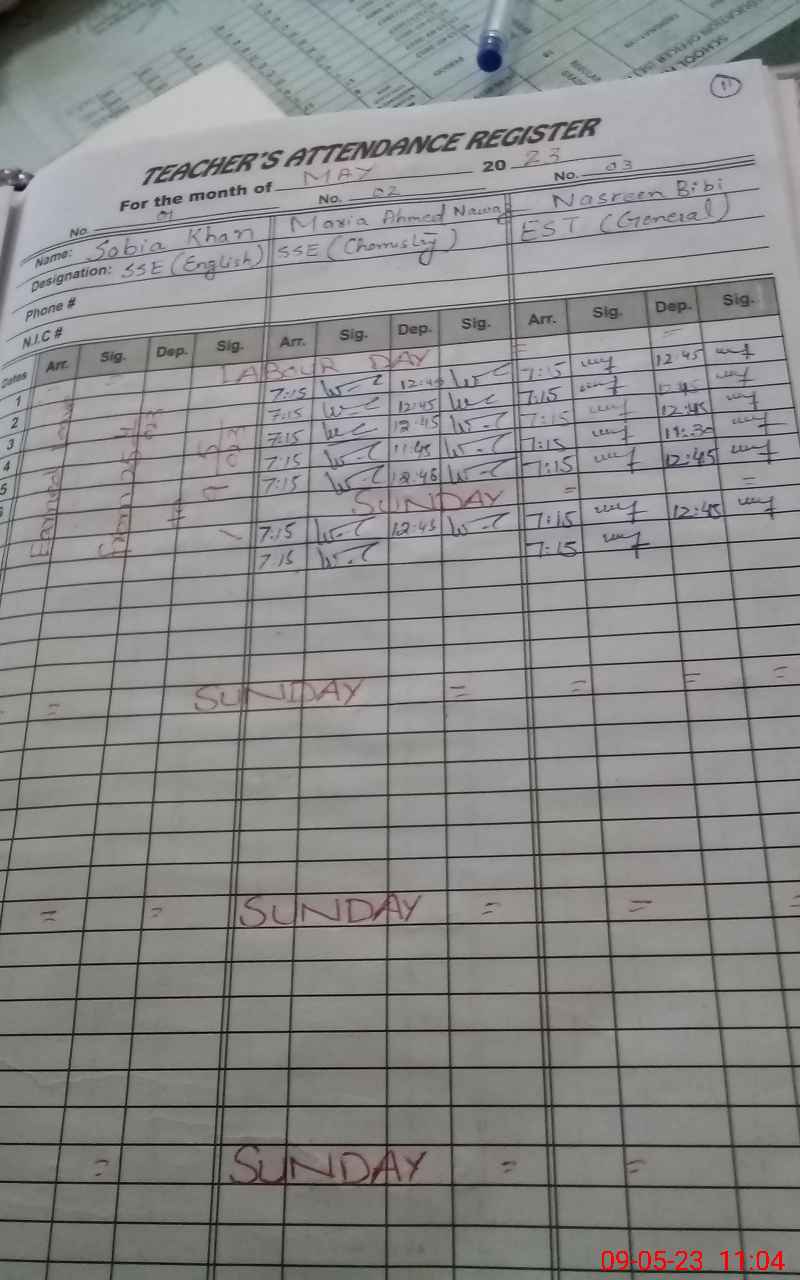 11
TEACHER'S ATTENDANCE REGISTER
For the month of MAY 2023
No. 01 No. 02 No. 03
Name: Sobia Khan Maria Ahmed Nawaz Nasreen Bibi
Designation: SSE (English) SSE (Chemistry) EST (General)
Phone #
N.I.C #
Dates Arr. Sig. Dep. Sig. Arr. Sig. Dep. Sig. Arr. Sig. Dep. Sig.
1 LABOUR DAY = =
2 7:15 12:45 7:15 12:45
3 7:15 12:45 7:15 12:45
4 7:15 12:45 7:15 12:45
5 7:15 11:45 7:15 11:30
6 7:15 12:45 7:15 12:45
SUNDAY = =
7:15 12:45 7:15 12:45
7:15 7:15
Earned Leave
from
= SUNDAY = = = =
= = SUNDAY = = =
= SUNDAY = =
09-05-23 11:04